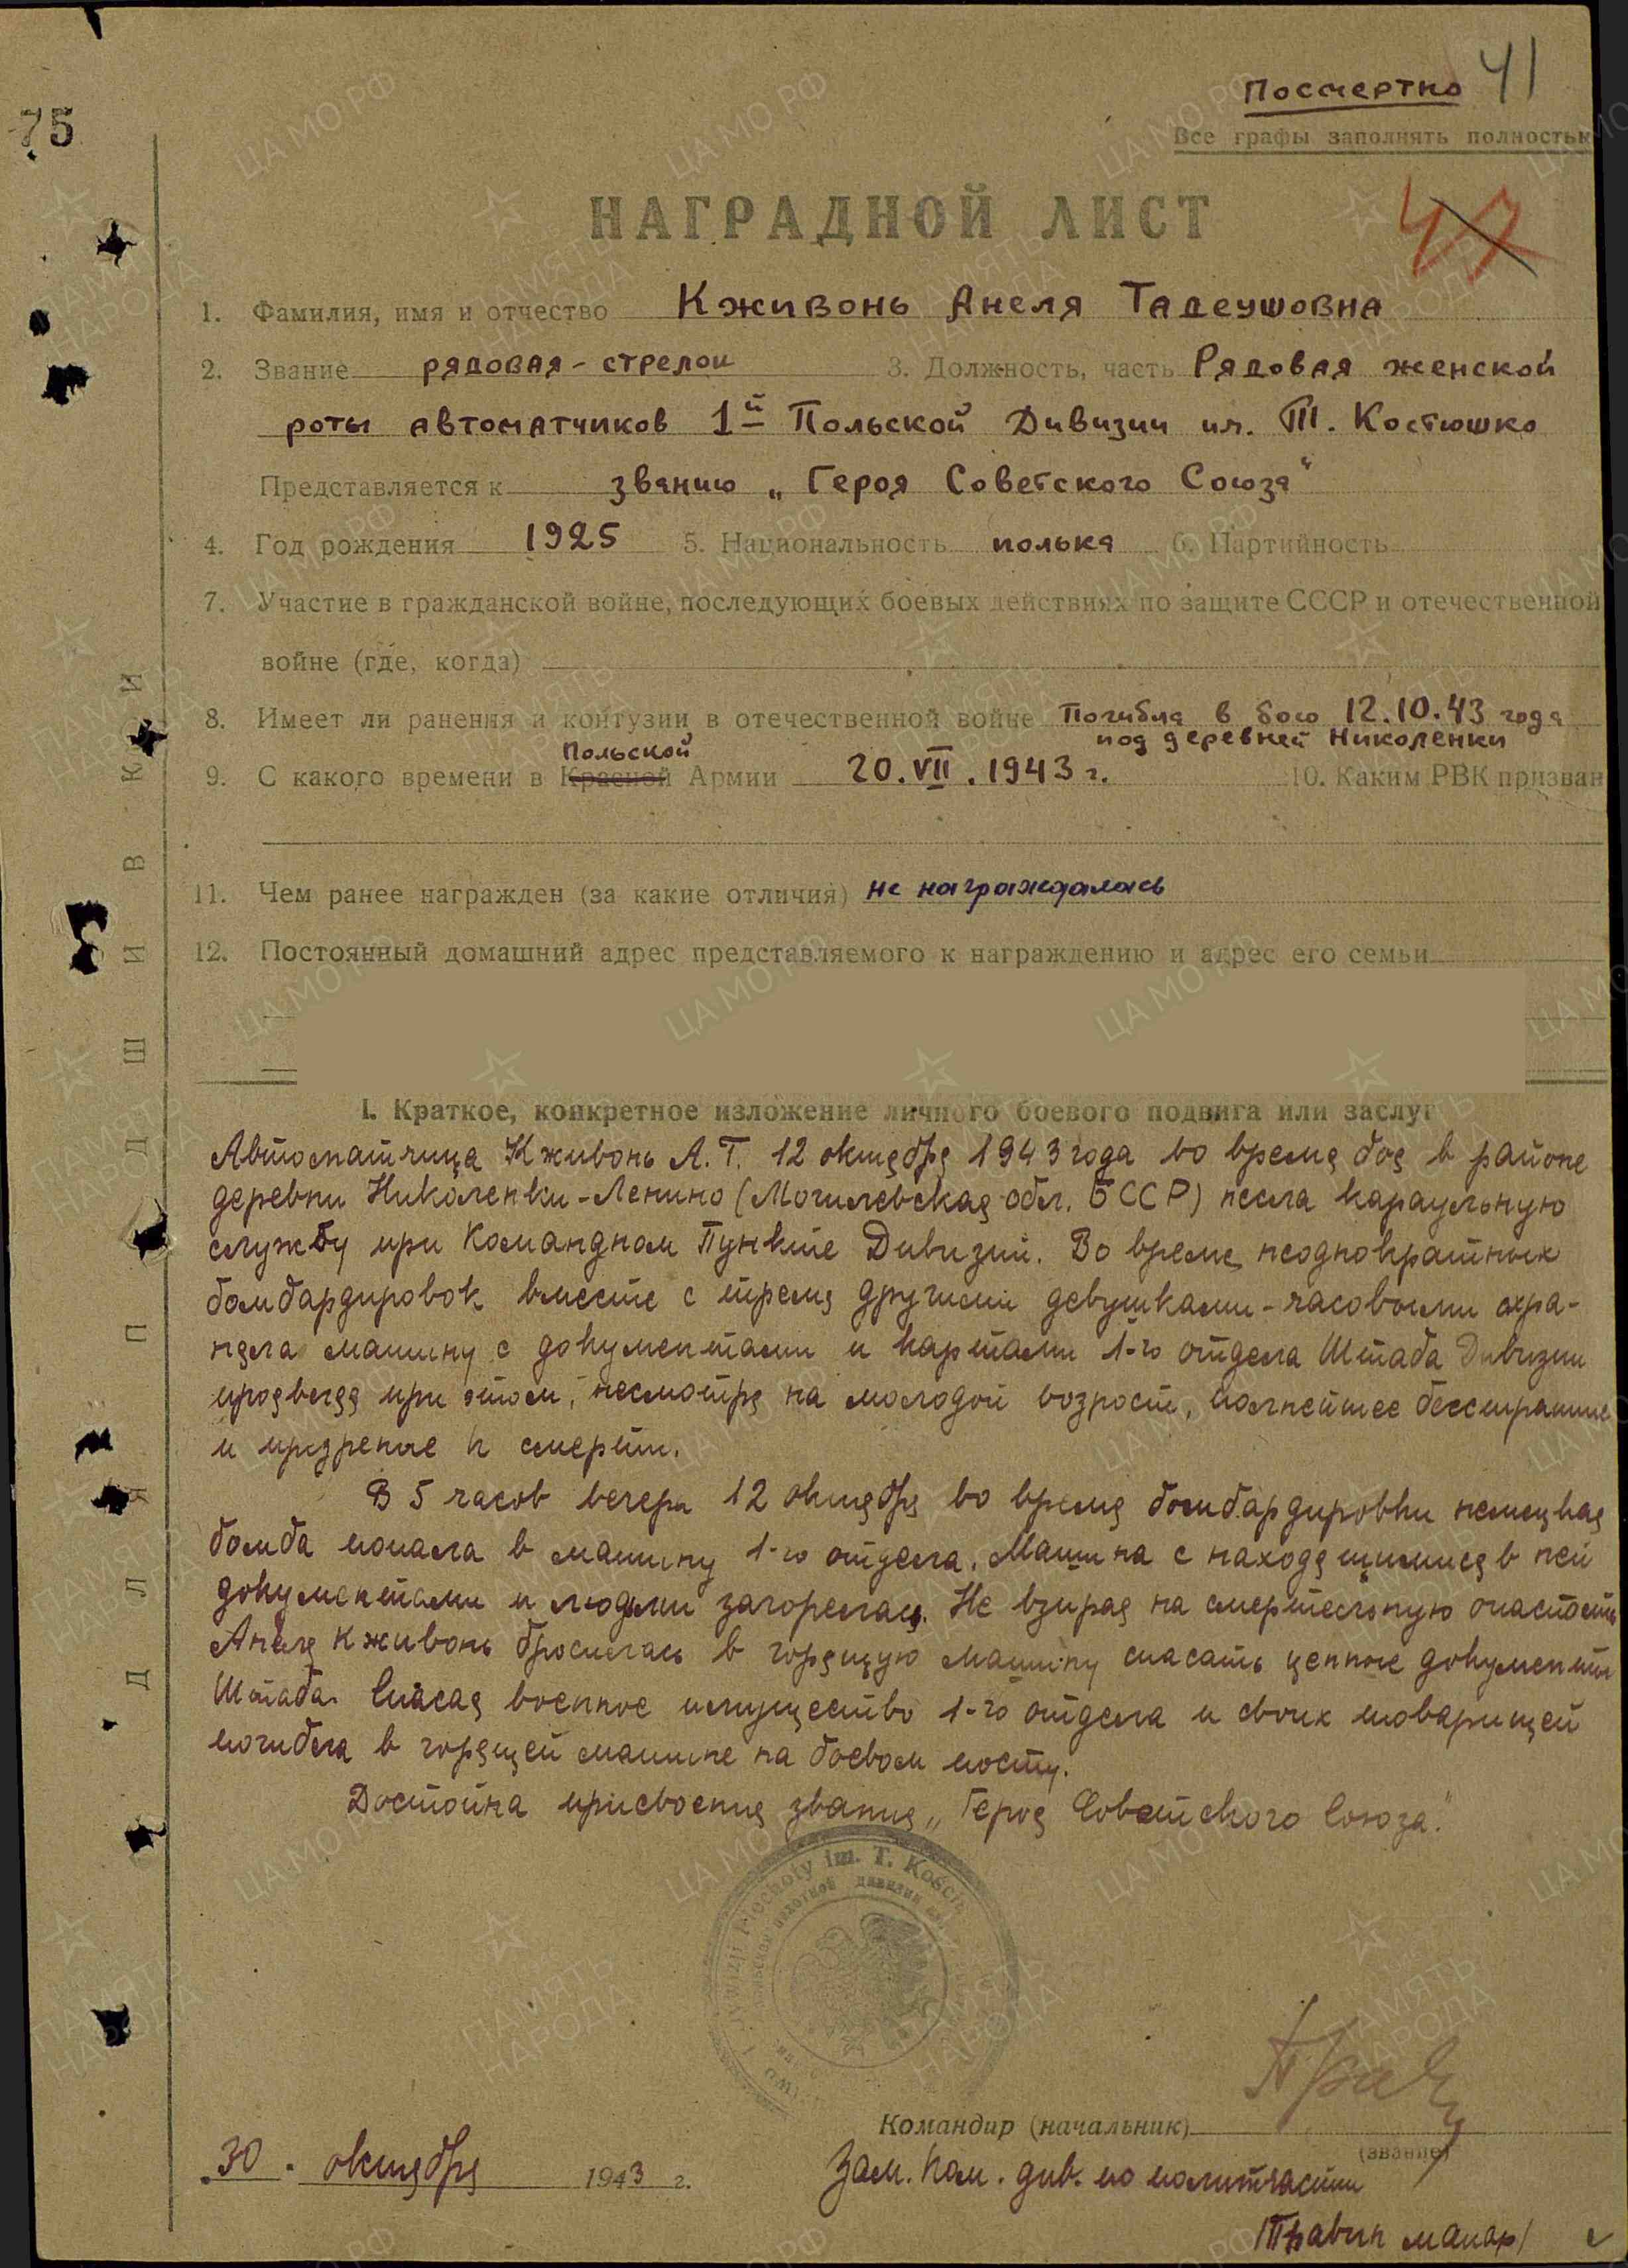 Посмертно 41
75
Все графы заполнять полностью
НАГРАДНОЙ ЛИСТ
47
1. Фамилия, имя и отчество Кживонь Анеля Тадеушовна
2. Звание рядовая-стрелок 3. Должность, часть Рядовая женской
роты автоматчиков 1й Польской Дивизии им. Т. Костюшко
Представляется к званию „Героя Советского Союза“
4. Год рождения 1925 5. Национальность полька 6. Партийность
7. Участие в гражданской войне, последующих боевых действиях по защите СССР и отечественной
войне (где, когда)
8. Имеет ли ранения и контузии в отечественной войне Погибла в бою 12.10.43 года
под деревней Николенки
Польской
9. С какого времени в Красной Армии 20.VII.1943 г. 10. Каким РВК призван
11. Чем ранее награжден (за какие отличия) не награждалась
12. Постоянный домашний адрес представляемого к награждению и адрес его семьи
I. Краткое, конкретное изложение личного боевого подвига или заслуг
Автоматчица Кживонь А.Т. 12 октября 1943 года во время боя в районе
деревни Николенки-Ленино (Могилевская обл. БССР) несла караульную
службу при Командном Пункте Дивизии. Во время неоднократных
бомбардировок вместе с тремя другими девушками-часовыми охра-
няла машину с документами и картами 1-го отдела Штаба Дивизии
проявляя при этом, несмотря на молодой возраст, полнейшее бесстрашие
и презрение к смерти.
В 5 часов вечера 12 октября во время бомбардировки немецкая
бомба попала в машину 1-го отдела. Машина с находящимися в ней
документами и людьми загорелась. Не взирая на смертельную опасность
Анеля Кживонь бросилась в горящую машину спасать ценные документы
Штаба. Спасая военное имущество 1-го отдела и своих товарищей
погибла в горящей машине на боевом посту.
Достойна присвоения звания „Героя Советского Союза."
1 Dywizji Piechoty im. T. Kościu
польской пехотной дивизии
Командир (начальник)
(звание)
30 октября 1943 г.
Зам. Ком. див. по политчасти
/ майор/
ДЛЯ ПОДШИВКИ
ЦА МО РФ
ПАМЯТЬ НАРОДА